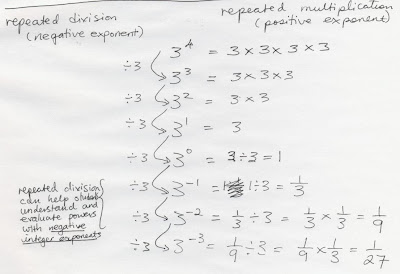 repeated division
(negative exponent)
repeated multiplication
(positive exponent)
3⁴ = 3 × 3 × 3 × 3
÷3
3³ = 3 × 3 × 3
÷3
3² = 3 × 3
÷3
3¹ = 3
÷3
3⁰ = 3÷3 = 1
÷3
3⁻¹ = 1÷3 = 1/3
÷3
3⁻² = 1/3 ÷ 3 = 1/3 × 1/3 = 1/9
÷3
3⁻³ = 1/9 ÷ 3 = 1/9 × 1/3 = 1/27
repeated division
can help
understand and
evaluate powers
with negative
integer exponents